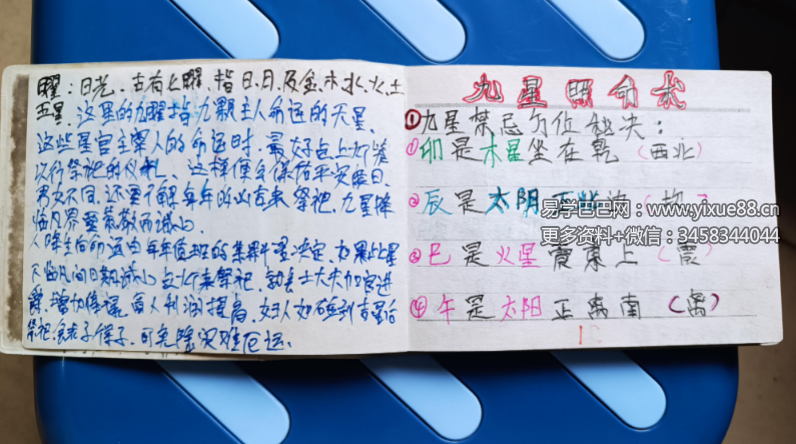 曜：日光，古有七曜，指日、月、及金、木、水、火、土
五星，这里的九曜指九颗主人命运的天星，
这些星宫主宰人的命运时，最好点上九盏
以行祭祀的仪礼，这样便会保佑平安
男女不同，还要了解每年的凶吉来祭祀，九星降
临凡界要恭敬而诚心
人降生后命运由年年值班的集耀星决定，如果此星
下临凡间日期诚心点灯来祭祀，就是士大夫加官进
爵，增加俸禄，商人利润提高，妇人如碰到吉星后
祭祀，可免除灾难厄运。
九星照命术
①九星禁忌方位秘决：
①卯是木星坐在乾（西北）
②辰是太阴正
③巳是火星震东上（震
④午是太阳正离南（离）
易学巴巴网：www.yixue88.cn
更多资料+微信：3458344044